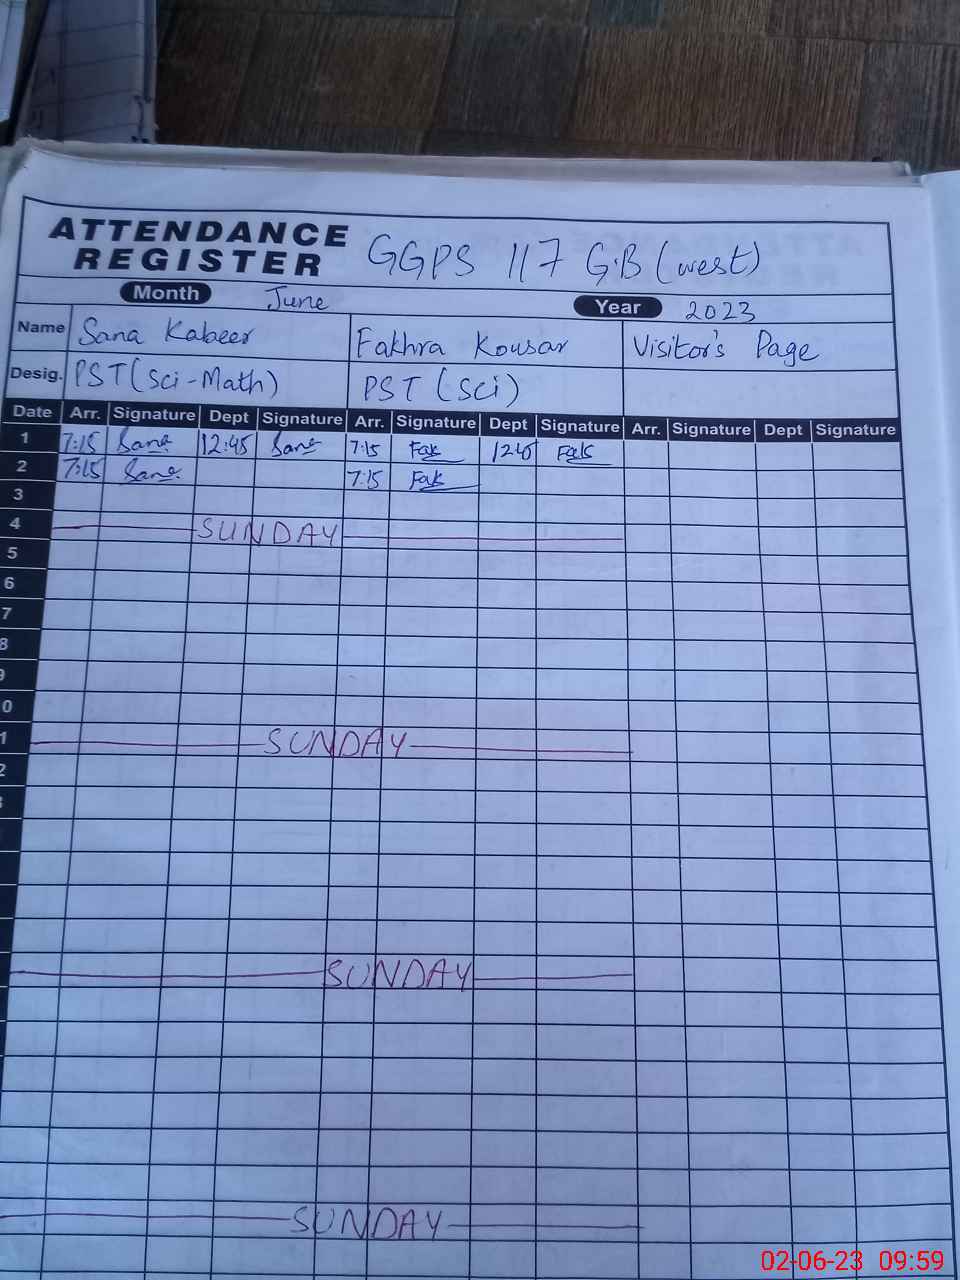 ATTENDANCE REGISTER GGPS 117 G.B (west)
Month June Year 2023
Name Sana Kabeer Fakhra Kousar Visitor's Page
Desig. PST (Sci-Math) PST (Sci)
Date Arr. Signature Dept Signature Arr. Signature Dept Signature Arr. Signature Dept Signature
1 7:15 Sana 12:45 Sana 7:15 Fak 12:45 Fak
2 7:15 Sana 7:15 Fak
3
4 SUNDAY
5
6
7
8
9
0
1 SUNDAY
2
SUNDAY
SUNDAY
02-06-23 09:59